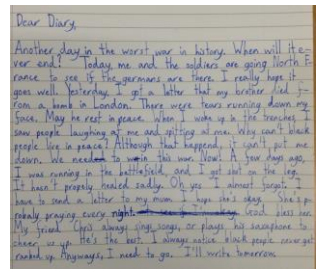 Dear Diary,
Another day in the worst war in history. When will it e-
ver end? Today me and the soldiers are going North F-
rance to see if the germans are there. I really hope it
goes well. Yesterday I got a letter that my brother died f-
rom a bomb in London. There were tears running down my
face. May he rest in peace. When I woke up in the trenches I
saw people laughing at me and spitting at me. Why can't black
people live in peace? Although that happend, it can't put me
down. We need to win this war. Now! A few days ago,
I was running in the battlefield, and I got shot on the leg.
It hasn't properly healed sadly. Oh yes I almost forgot. I
have to send a letter to my mum I hope she's okay. She's p-
robaly praying every night. God bless her.
My friend Chris always sings songs, or plays his saxaphone to
cheer us up. He's the best. I always notice black people never get
ranked up. Anyways, I need to go. I'll write tomorrow.